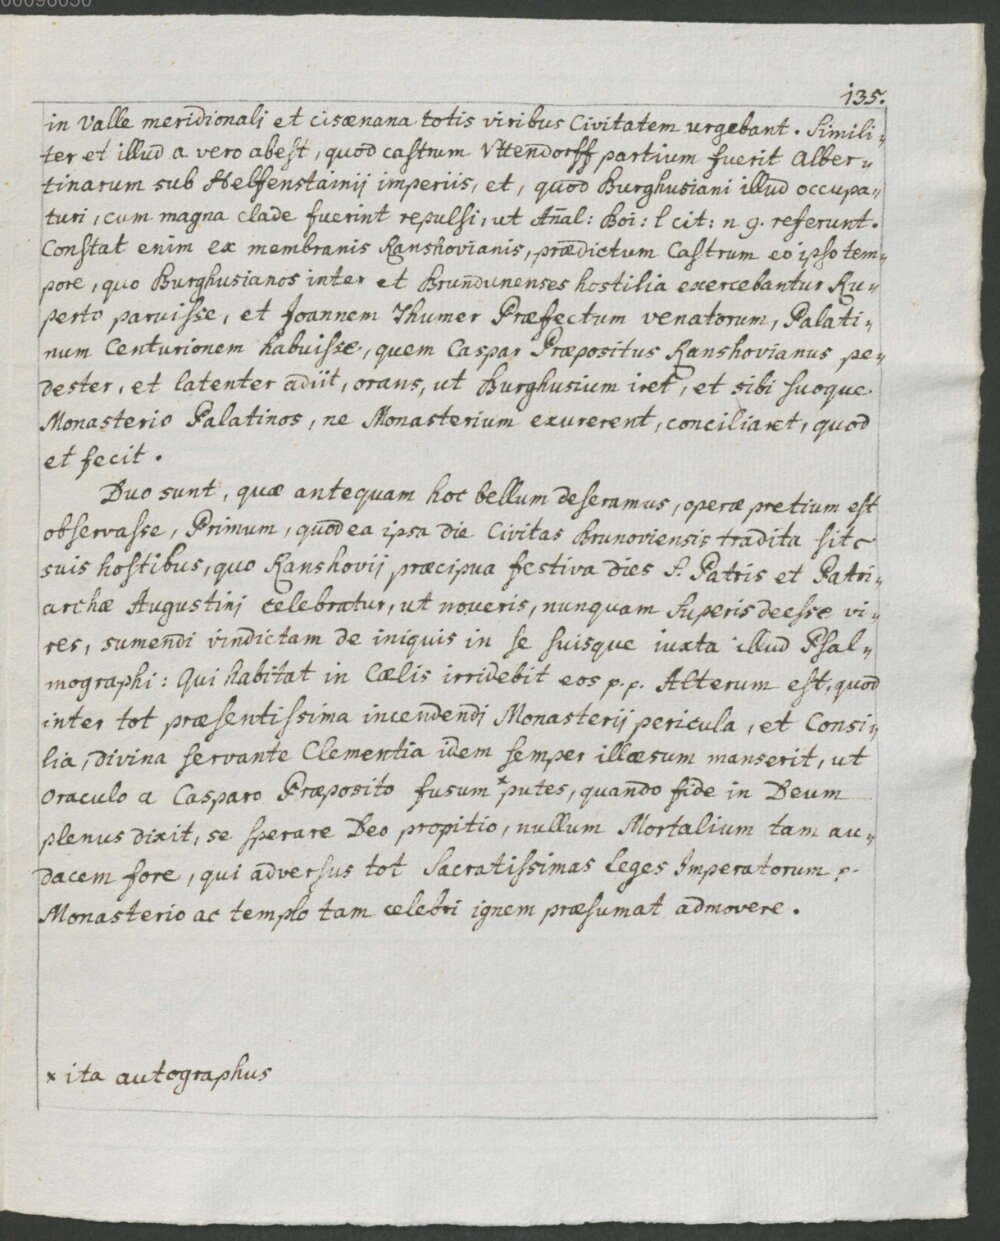 00096030
135.
in Valle meridionali et cisænana totis viribus Civitatem urgebant. Simili-
ter et illud a vero abest, quod castrum Uttendorff partium fuerit Alber-
tinarum sub Helfenstainij imperiis, et, quod Burghusiani illud occupa-
turi, cum magna clade fuerint repulsi, ut Añal: Boi: l cit: n 9. referunt.
Constat enim ex membranis Ranshovianis, prædictum Castrum eo ipso tem-
pore, quo Burghusianos inter et Brundunenses hostilia exercebantur Ru-
perto paruisse, et Joannem Thumer Præfectum venatorum, Palati-
num Centurionem habuisse, quem Caspar Præpositus Ranshovianus pe-
dester, et latenter adiit, orans, ut Burghusium iret, et sibi suoque
Monasterio Palatinos, ne Monasterium exurerent, conciliaret, quod
et fecit.
Duo sunt, quæ antequam hoc bellum deseramus, operæ pretium est
observasse, Primum, quod ea ipsa die Civitas Brunoviensis tradita sit
suis hostibus, quo Ranshovij præcipua festiva dies S. Patris et Patri-
archæ Augustini celebratur, ut noveris, nunquam Superis deesse vi-
res, sumendi vindictam de iniquis in se suisque iuxta illud Psal-
mographi: Qui habitat in Cælis irridebit eos p.p. Alterum est, quod
inter tot præsentissima incendendi Monasterij pericula, et Consi-
lia, divina servante Clementia idem semper illæsum manserit, ut
Oraculo a Casparo Præposito fusum x putes, quando fide in Deum
plenus dixit, se sperare Deo propitio, nullum Mortalium tam au-
dacem fore, qui adversus tot Sacratissimas Leges Imperatorum p.
Monasterio ac templo tam celebri ignem præsumat admovere.
x ita autographus